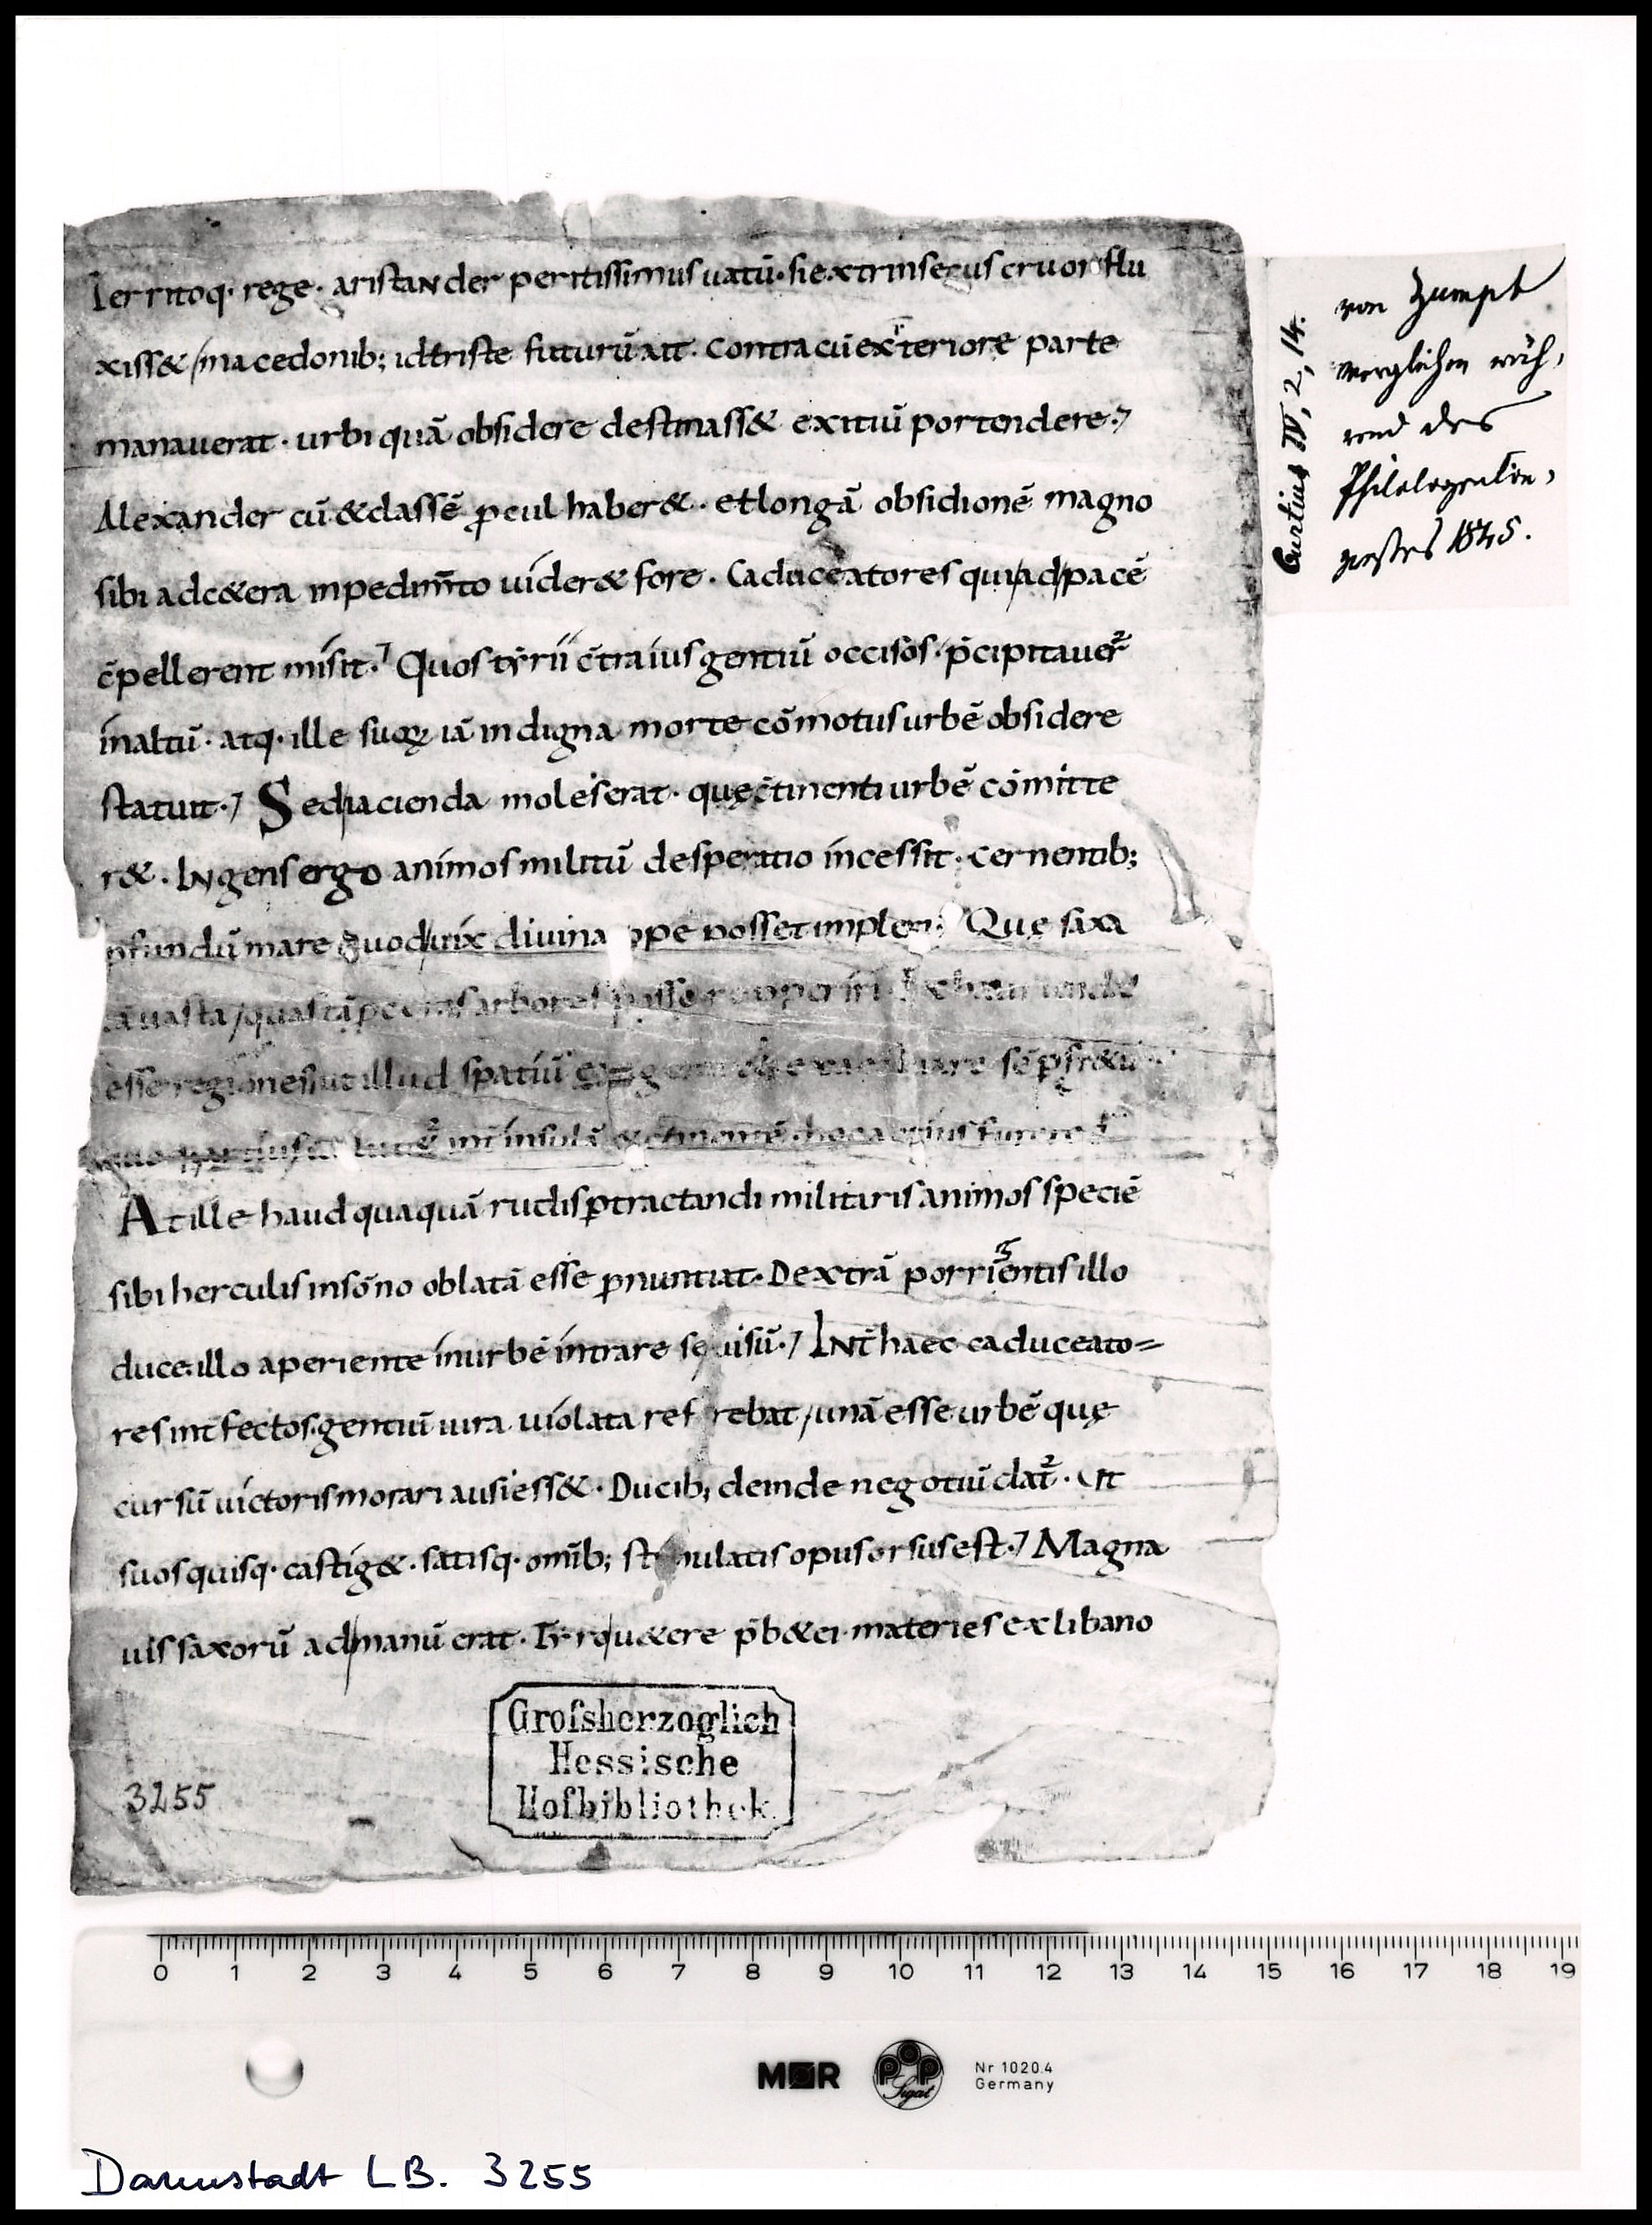 Territoq· rege· aristander peritissimus uatū· si extrinsecus cruor flu
xiss& macedonib; id triste futurū ait· Contra cū ex īteriore parte
manauerat· urbi quā obsidere destinass& exitiū portendere·
Alexander cū & classē ꝓcul haber&· et longā obsidionē magno
sibi ad c&era inpedim̄to uider& fore· Caduceatores qui ad pacē
c̄pellerent misit· Quos tẏrii c̄tra ius gentiū occisos· p̄cipitauer̄
in altū· atq· ille suoꝝ iā indigna morte cōmotus urbē obsidere
statuit· Sed iacienda moles erat· quę c̄tinenti urbē cōmitte
r&· Ingens ergo animos militū desperatio incessit· Cernentib;
ꝓfundū mare quod uix diuina ope posset impleri Quę saxa
tā uasta quas tā arbores posse
esse regiones ut illud spatiū
int̄ insulā
At ille haudquaquā rudis ꝑtractandi militaris animos speciē
sibi herculis in sōno oblatā esse ꝓnuntiat· Dextrā porrigentis illo
duce illo aperiente in urbē intrare se uisū· Int̄ haec caduceato=
res int̄fectos· gentiū iura uiolata ref rebat unā esse urbē quę
cursū uictoris morari ausi ess&· Ducib; deinde negotiū dat̄· Ut
suos quisq· castig&· satisq· omīb; stimulatis opus orsus est· Magna
uis saxorū ad manū erat· Tẏro u&ere p̄b&e materies ex libano
Großherzoglich
Hessische
Hofbibliothek.
3255
Curtius IV, 2, 14.
von Zumpt
verglichen wäh,
rend des
Philologentre,
festes 1845.
0 1 2 3 4 5 6 7 8 9 10 11 12 13 14 15 16 17 18 19
M R
POP
Sigat
Nr 1020.4
Germany
Darmstadt LB. 3255